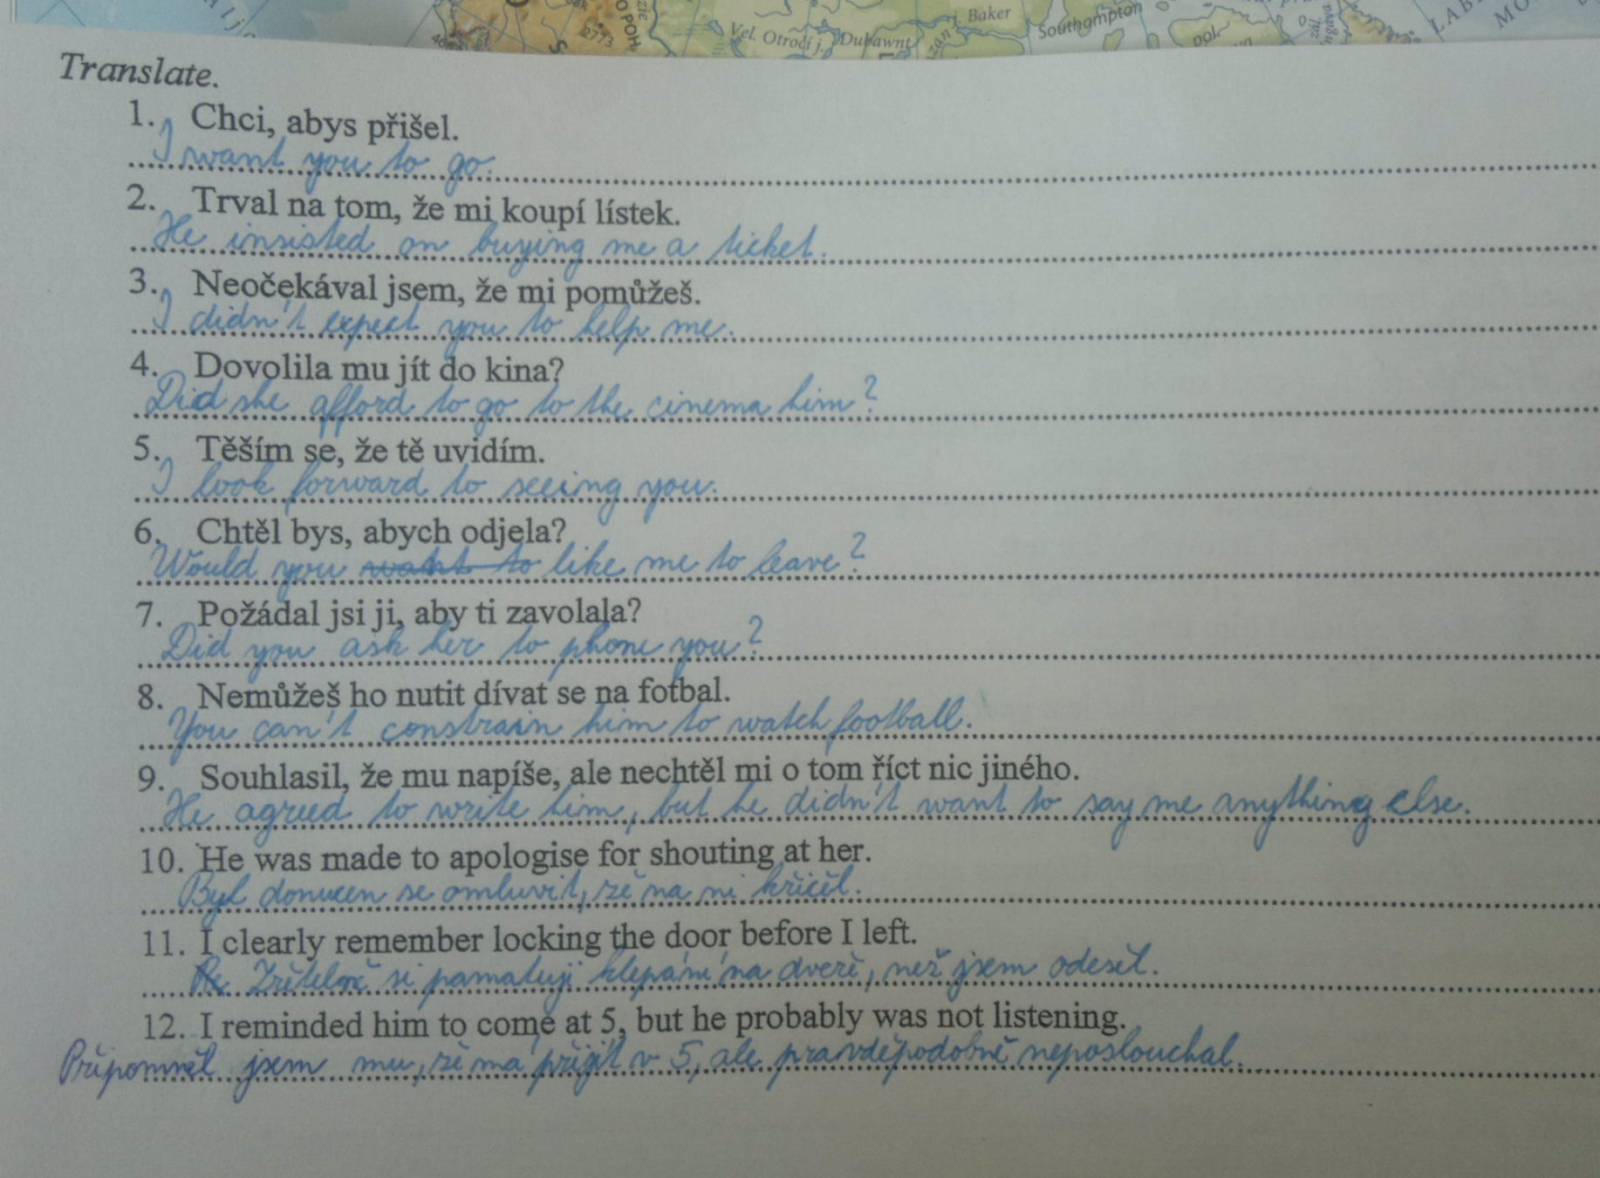 Vel. Otročí j. Dubawnt
j. Baker
Southampton
2773
pol.
LAB
MO
Translate.
1. Chci, abys přišel.
I want you to go.
2. Trval na tom, že mi koupí lístek.
He insisted on buying me a ticket.
3. Neočekával jsem, že mi pomůžeš.
I didn't expect you to help me.
4. Dovolila mu jít do kina?
Did she afford to go to the cinema him?
5. Těším se, že tě uvidím.
I look forward to seeing you.
6. Chtěl bys, abych odjela?
Would you want to like me to leave?
7. Požádal jsi ji, aby ti zavolala?
Did you ask her to phone you?
8. Nemůžeš ho nutit dívat se na fotbal.
You can't constrain him to watch football.
9. Souhlasil, že mu napíše, ale nechtěl mi o tom říct nic jiného.
He agreed to write him, but he didn't want to say me anything else.
10. He was made to apologise for shouting at her.
Byl donucen se omluvit, že na ni křičel.
11. I clearly remember locking the door before I left.
Zřetelně si pamatuji klepání na dveře, než jsem odešel.
12. I reminded him to come at 5, but he probably was not listening.
Připomněl jsem mu, že má přijít v 5, ale pravděpodobně neposlouchal.